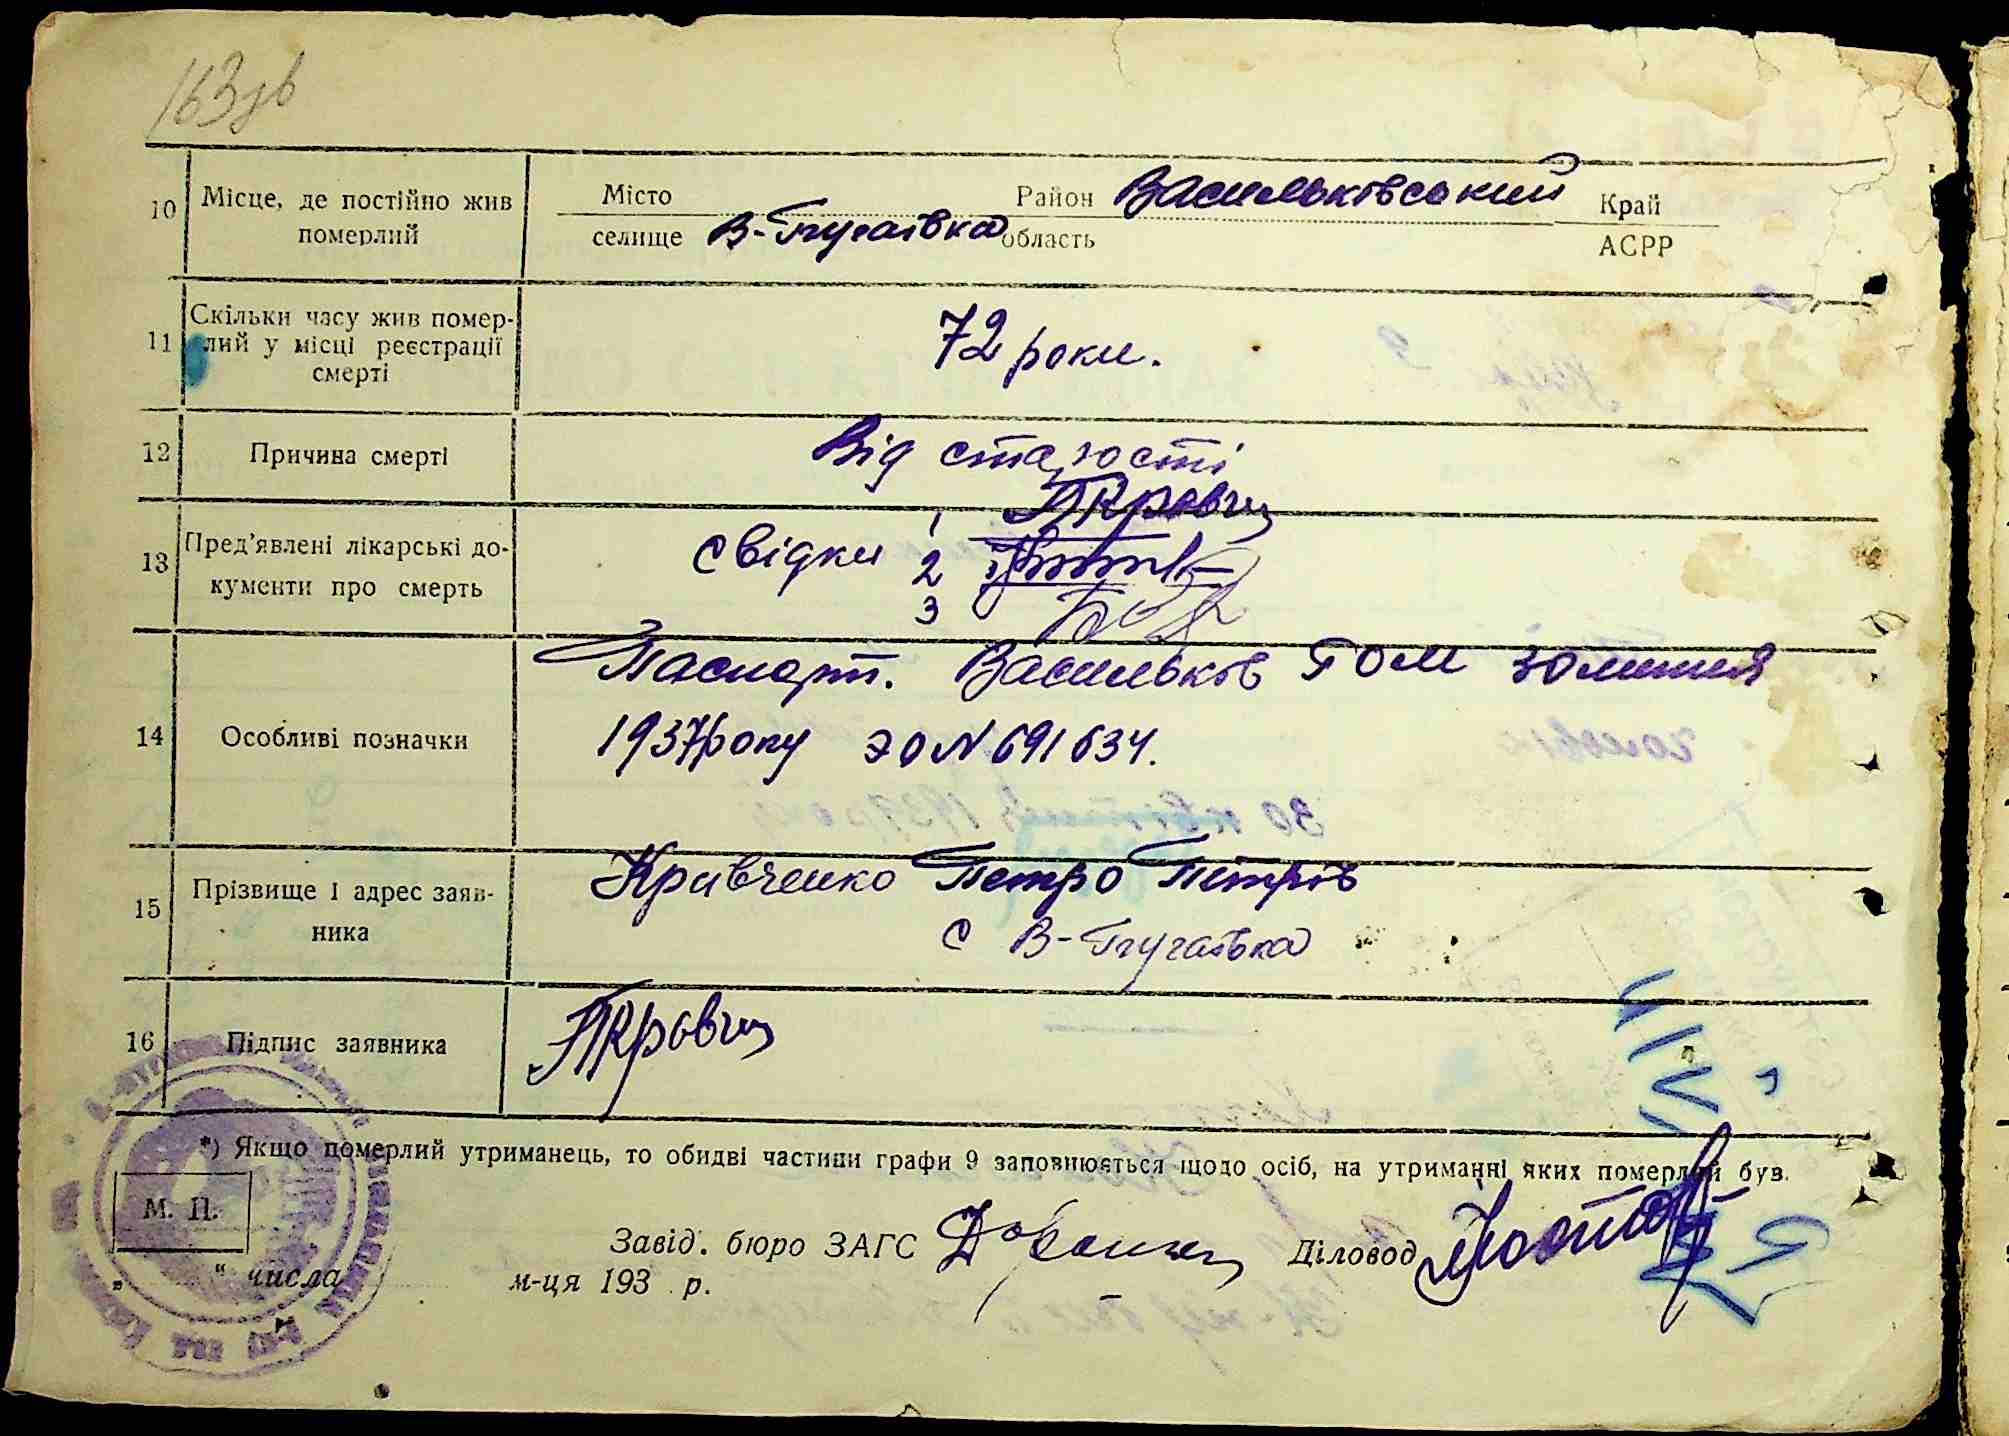 163 зв
10 Місце, де постійно жив померлий
Місто Район Васильковський Край
селище В-Бугаївка область АСРР
11 Скільки часу жив помер-
лий у місці реєстрації
смерті
72 роки.
12 Причина смерті
Від старости
13 Пред'явлені лікарські до-
кументи про смерть
Свідки 1
2
3
14 Особливі позначки
Паспорт. Васильков
1937 року ЭО N 691634.
15 Прізвище і адрес заяв-
ника
Кравченко Петро Петрів
с В-Бугаївка
16 Підпис заявника
*) Якщо померлий утриманець, то обидві частини графи 9 заповнюється щодо осіб, на утриманні яких померлий був.
М. П.
Завід. бюро ЗАГС Діловод
„ “ числа м-ця 193 р.